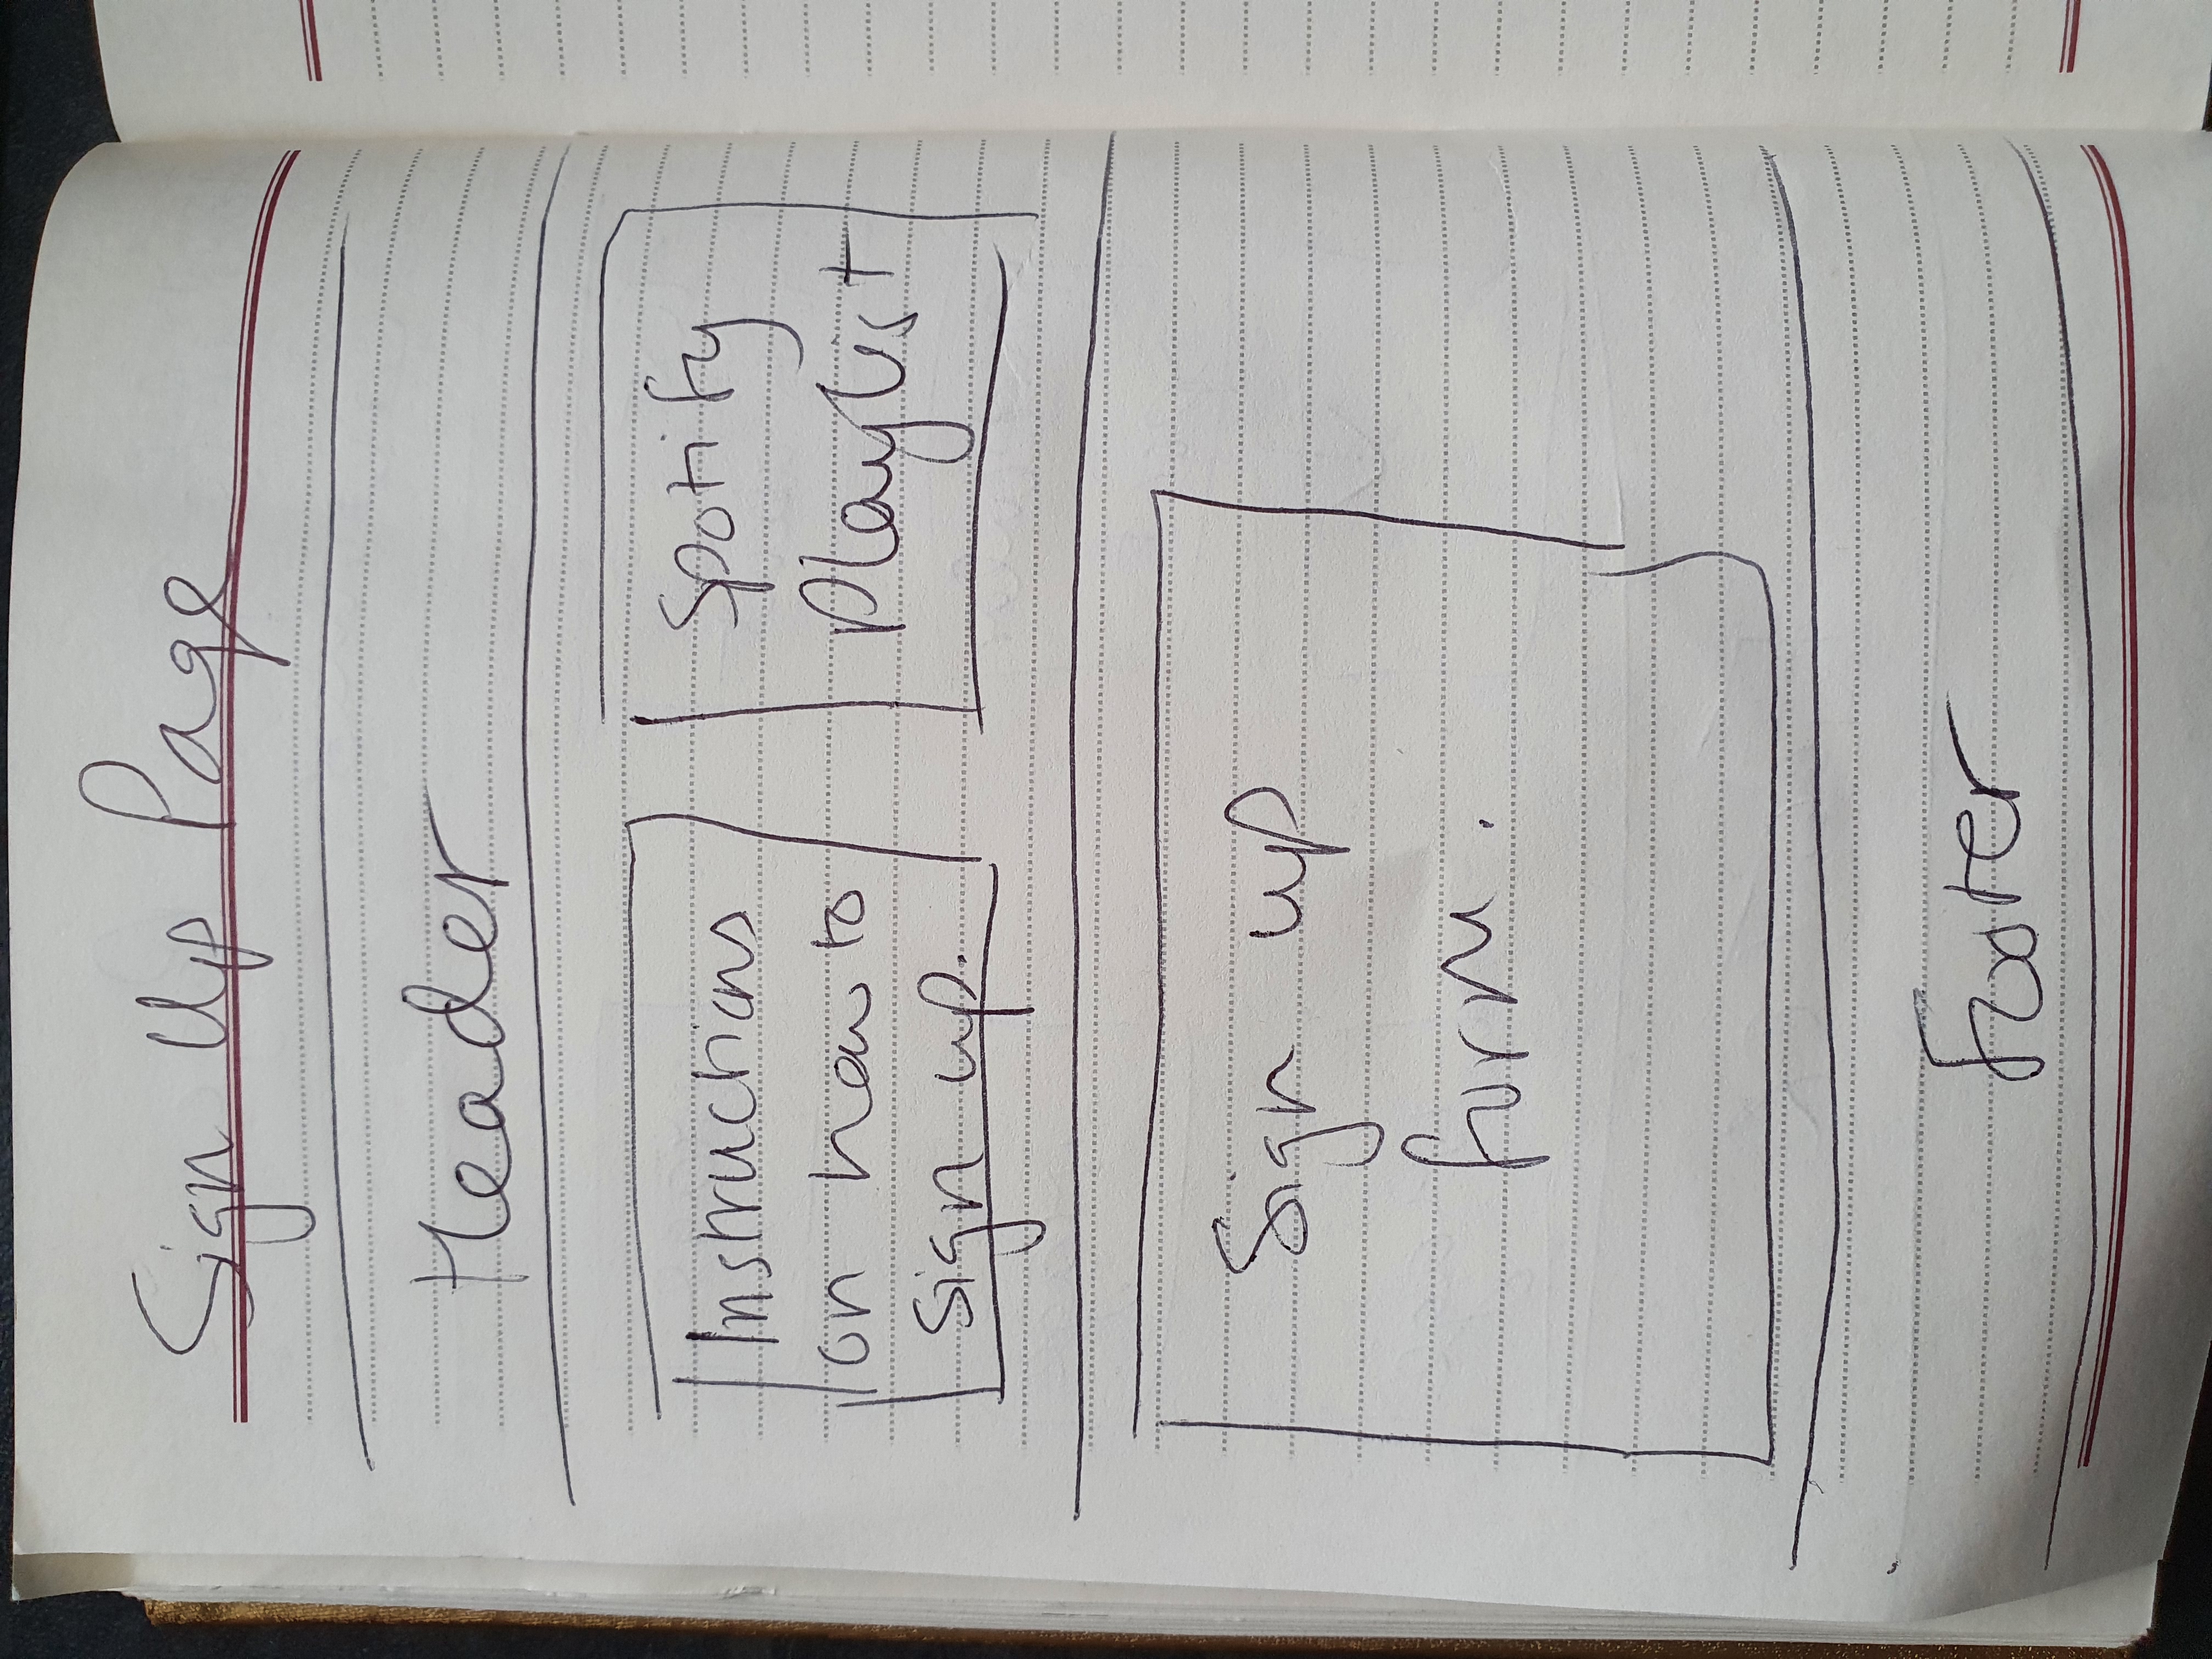 Sign Up Page
Header
Instructions
on how to
sign up.
Spotify
Playlist
Sign up
form.
Footer